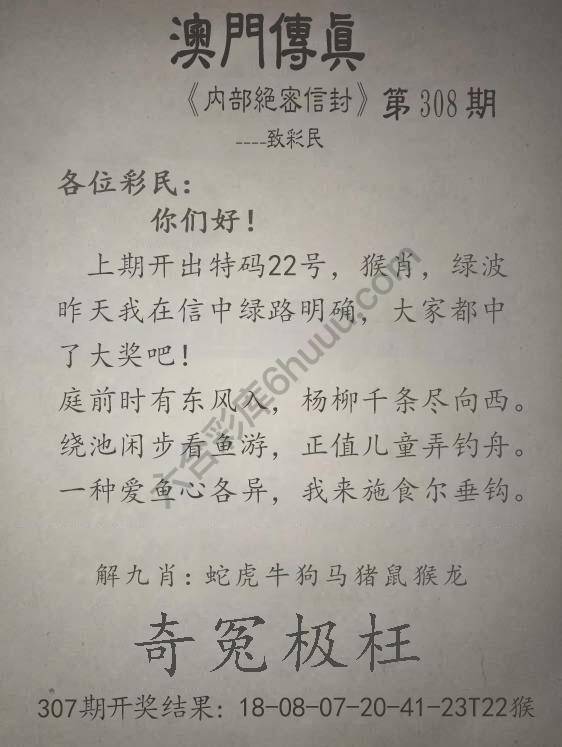 澳門傳真
《内部絕密信封》第308期
----致彩民
各位彩民:
你们好!
上期开出特码22号，猴肖，绿波
昨天我在信中绿路明确，大家都中
了大奖吧!
庭前时有东风入，杨柳千条尽向西。
绕池闲步看鱼游，正值儿童弄钓舟。
一种爱鱼心各异，我来施食尔垂钩。
解九肖:蛇虎牛狗马猪鼠猴龙
奇冤极枉
307期开奖结果: 18-08-07-20-41-23T22猴
六合彩库6huuu.com